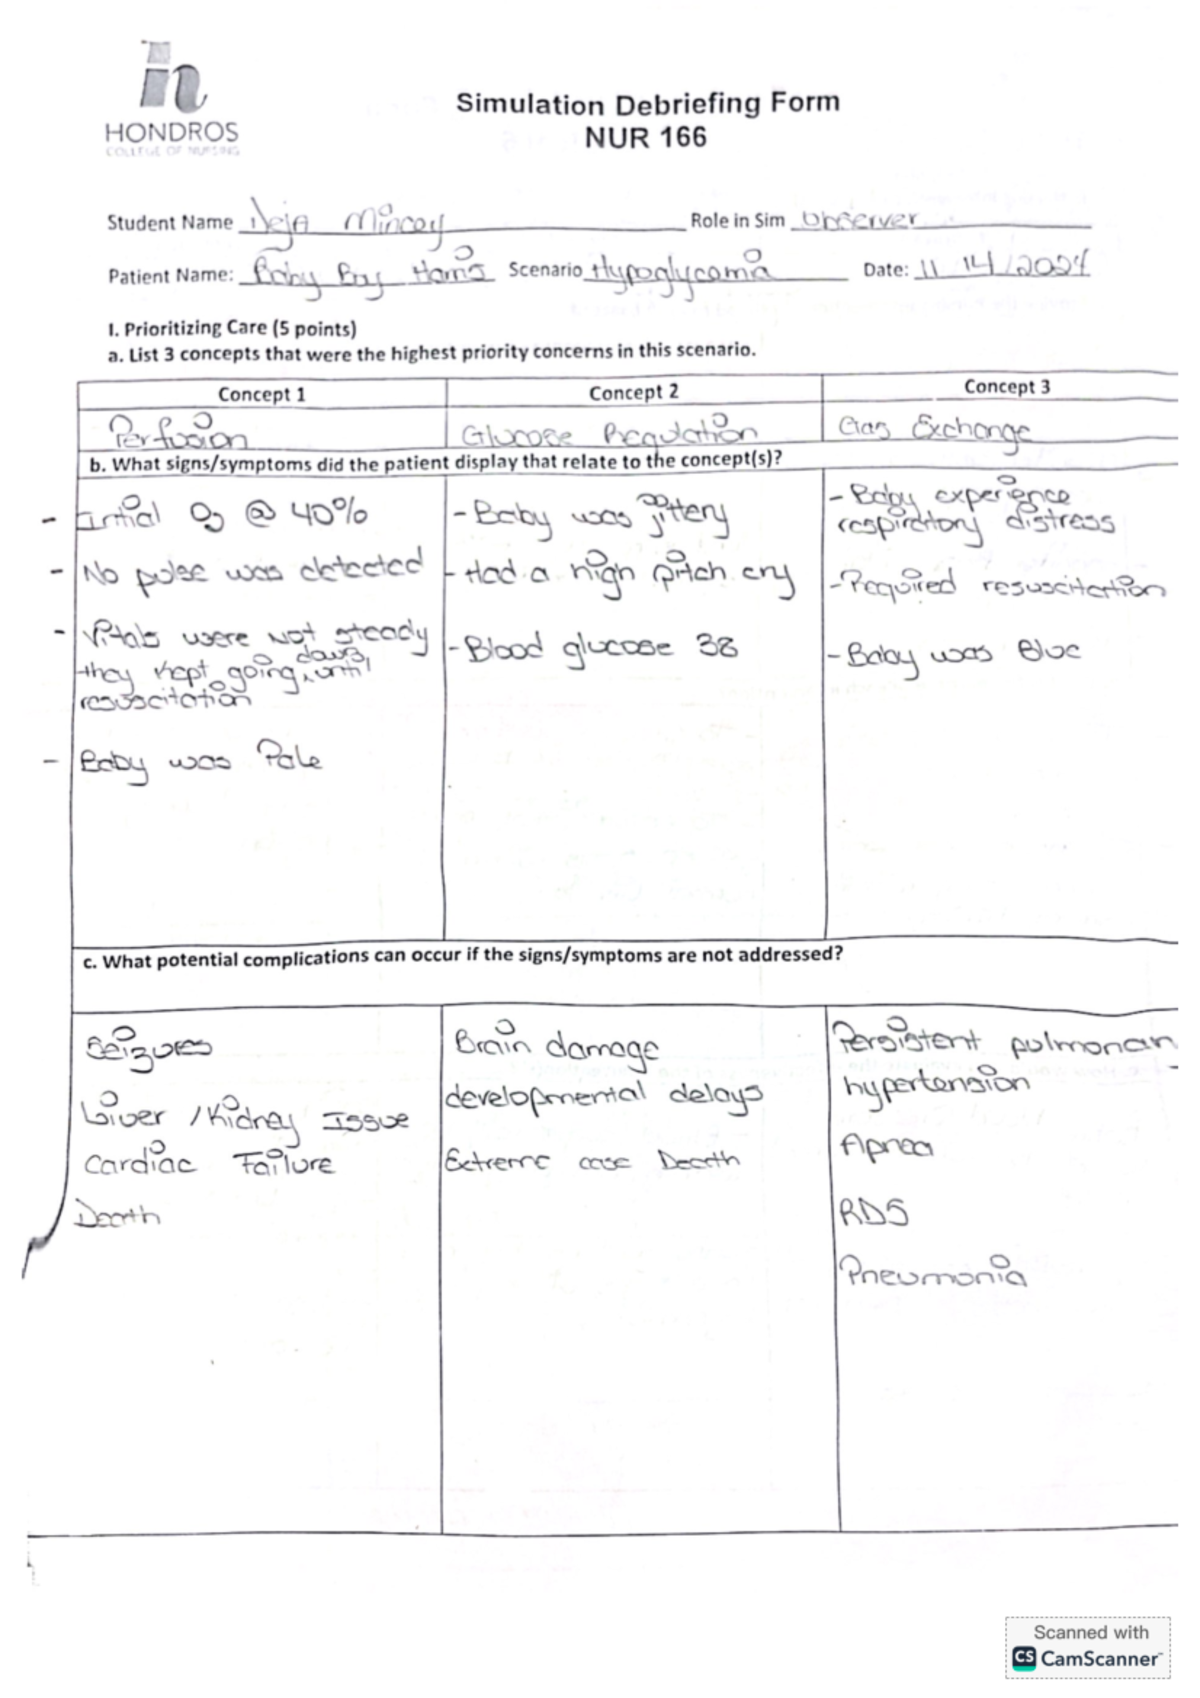 HONDROS
COLLEGE OF NURSING
Simulation Debriefing Form
NUR 166
Student Name Deja Mincey Role in Sim Observer
Patient Name: Baby Boy Harris Scenario Hypoglycamia Date: 11/14/2024
I. Prioritizing Care (5 points)
a. List 3 concepts that were the highest priority concerns in this scenario.
Concept 1 Concept 2 Concept 3
Perfusion Glucose Regulation Gas Exchange
b. What signs/symptoms did the patient display that relate to the concept(s)?
- Initial O2 @ 40%
- No pulse was detected
- Vitals were not steady
they kept going down, until
resuscitation
- Baby was Pale
- Baby was jittery
- Had a high pitch cry
- Blood glucose 38
- Baby experience
respiratory distress
- Required resuscitation
- Baby was Blue
c. What potential complications can occur if the signs/symptoms are not addressed?
Seizues
Liver / Kidney Issue
Cardiac Failure
Death
Brain damage
developmental delays
Extreme case Death
Persistent pulmonary
hypertension
Apnea
RDS
Pneumonia
Scanned with
CS CamScanner